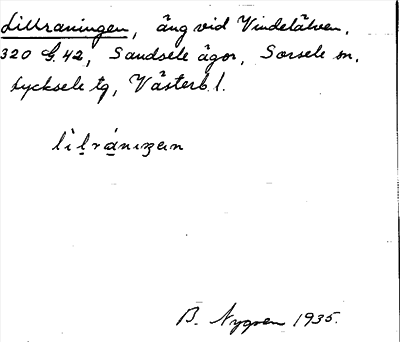 Lillraningen, äng vid Vindelälven,
320 G. 42, Sandsele ägor, Sorsele sn,
Lycksele tg, Västerb. l.
B. Nygren 1935.